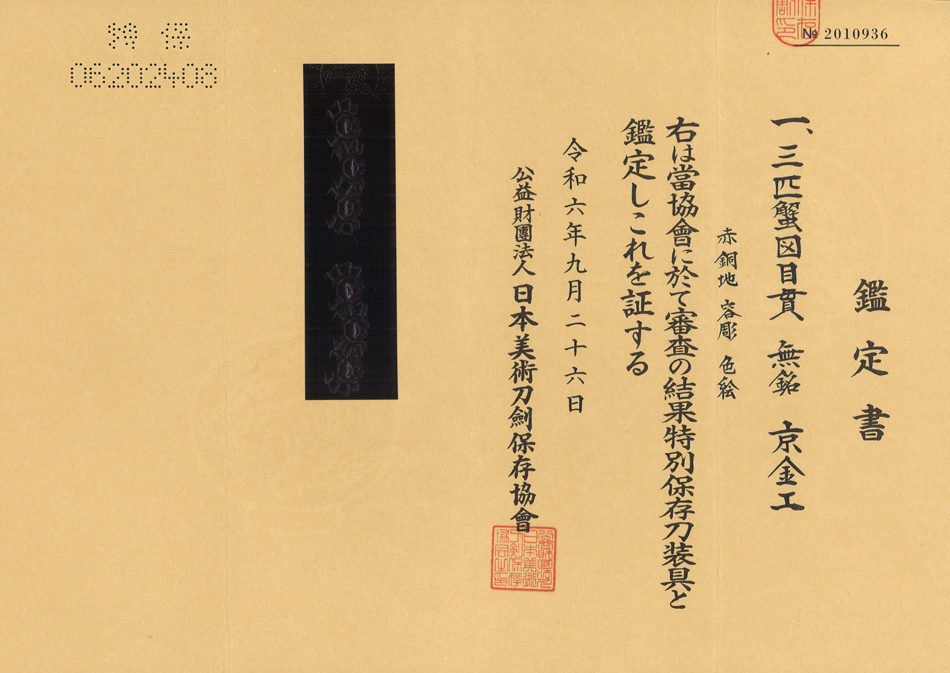 特 保
06202408
№ 2010936
鑑定書
一、三匹蟹図目貫 無銘 京金工
赤銅地 容彫 色絵
右は當協會に於て審査の結果特別保存刀装具と
鑑定しこれを証する
令和六年九月二十六日
公益財團法人日本美術刀劍保存協會